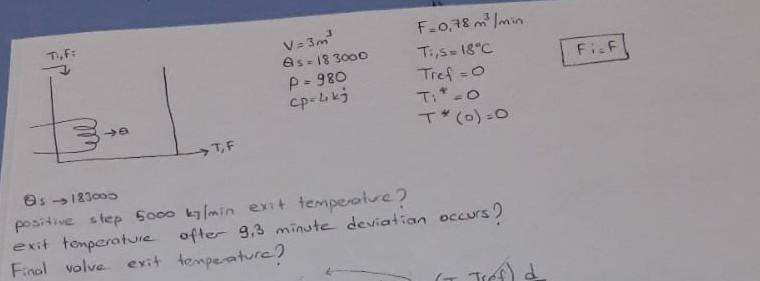 Ti,Fi
V=3m³
Qs=183000
ρ=980
Cp=4kj
F=0,78m³/min
Ti,s=18°C
Tref=0
Ti*=0
T*(0)=0
Fi=F
→Q
→T,F
Qs→183000
positive step 5000 kj/min exit temperature?
exit temperature after 9,3 minute deviation occurs?
Final valve exit temperature?
(T-Tref) d